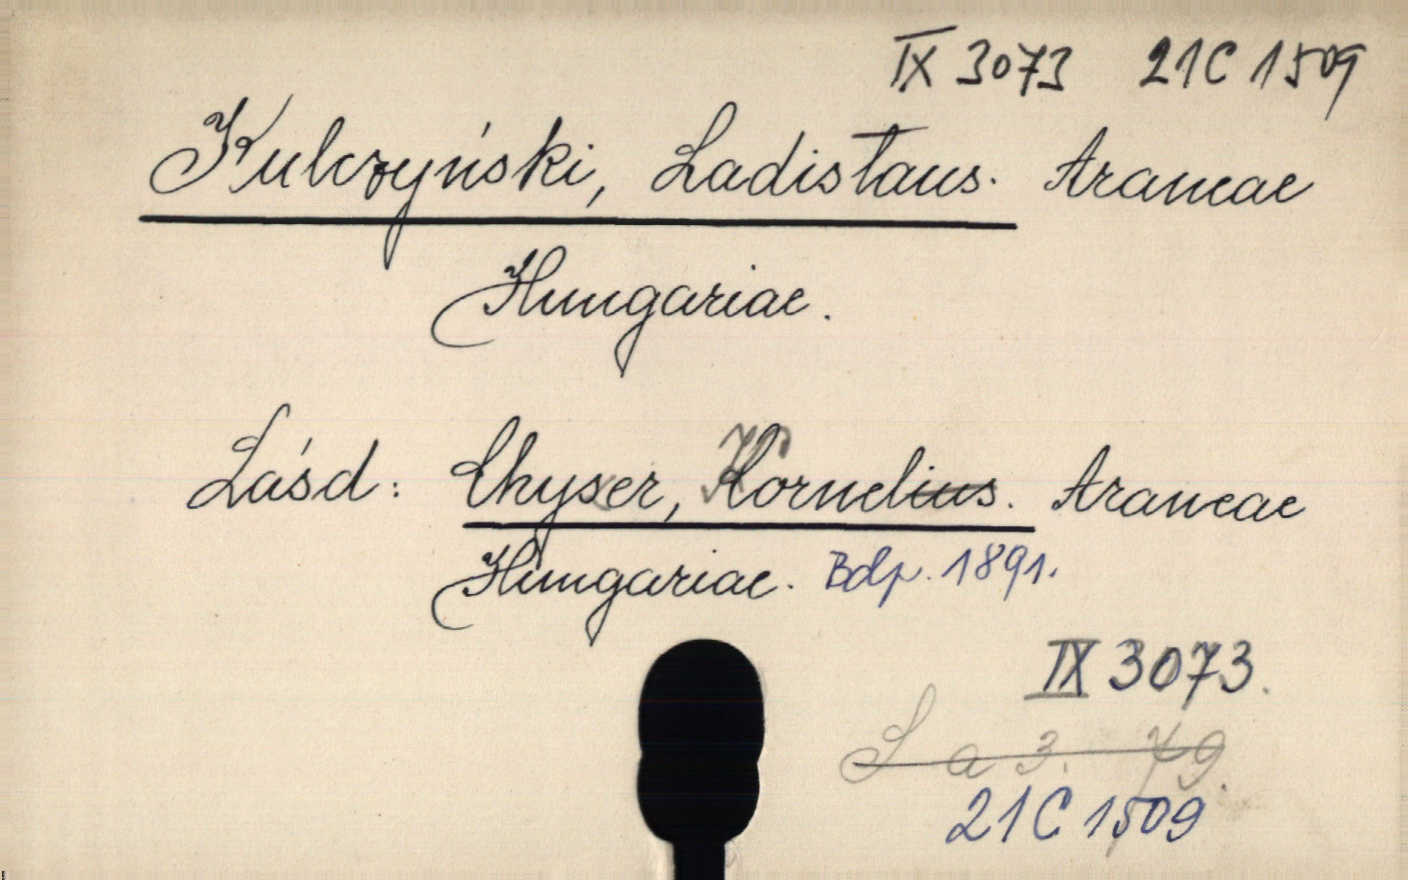 IX 3073 21C 1509
Kulczyński, Ladislaus. Araneae
Hungariae.
Lásd: Chyzer, Kornelius. Araneae
Hungariae. Bdp. 1891.
IX 3073.
L a 3. 79.
21C 1509